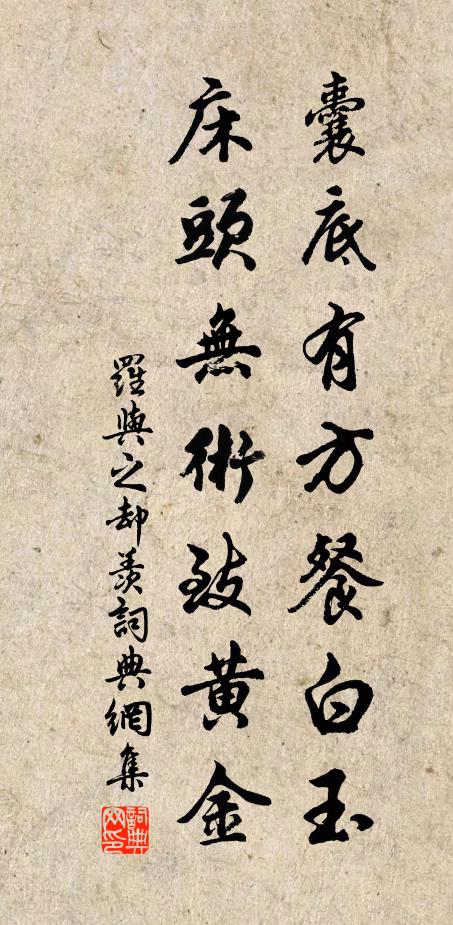 囊底有方餐白玉
床頭無術致黃金
羅與之却羨詞典網集
詞典网印